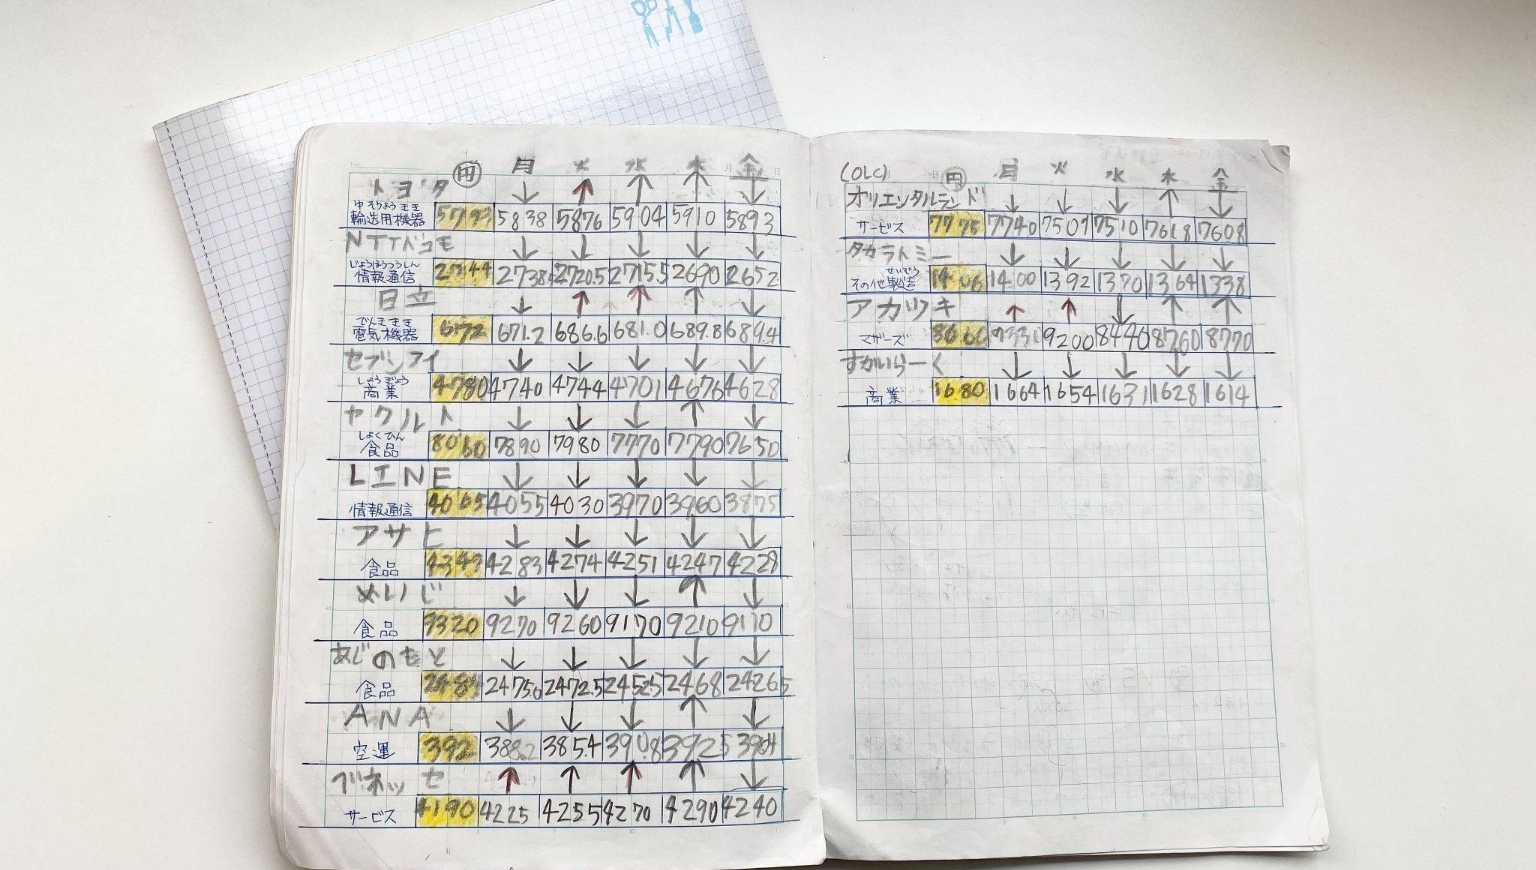 円 月 火 水 木 金
トヨタ ↓ ↑ ↑ ↑ ↓
ゆそうようきき
輸送用機器 5838 5876 5904 5910 5893
NTTドコモ ↓ ↓ ↓ ↓ ↓
じょうほうつうしん
情報通信 2744 2738 2720.5 2715.5 2690 2652
日立 ↓ ↑ ↑ ↑ ↓
でんききき
電気機器 672 671.2 686.6 681.0 689.8 689.4
セブンアイ ↓ ↓ ↓ ↓ ↓
しょうぎょう
商業 4780 4740 4744 4701 4676 4628
ヤクルト ↓ ↓ ↓ ↑ ↓
しょくひん
食品 8060 7890 7980 7770 7790 7650
LINE ↓ ↓ ↓ ↓ ↓
情報通信 4065 4055 4030 3970 3960 3875
アサヒ ↓ ↓ ↓ ↓ ↓
食品 4283 4274 4251 4247 4228
めいじ ↓ ↓ ↓ ↑ ↓
食品 9320 9270 9260 9170 9210 9170
あじのもと ↓ ↓ ↓ ↓ ↓
食品 2475.0 2472.5 2452.5 2468 2426.5
ANA ↓ ↓ ↓ ↑ ↓
空運 392 388.2 385.4 390.8 392.5 390.4
ベネッセ ↑ ↑ ↑ ↑ ↓
サービス 4190 4225 4255 4270 4290 4240
(OLC) 円 月 火 水 木 金
オリエンタルランド ↓ ↓ ↓ ↑ ↓
サービス 7775 7740 7507 7510 7618 7608
タカラトミー ↓ ↓ ↓ ↓ ↓
せいぞう
その他製造 1406 1400 1392 1370 1364 1338
アカツキ ↑ ↑ ↓ ↑ ↑
マザーズ 9200 8440 8760 8770
すかいらーく ↓ ↓ ↓ ↓ ↓
商業 1680 1664 1654 1631 1628 1614